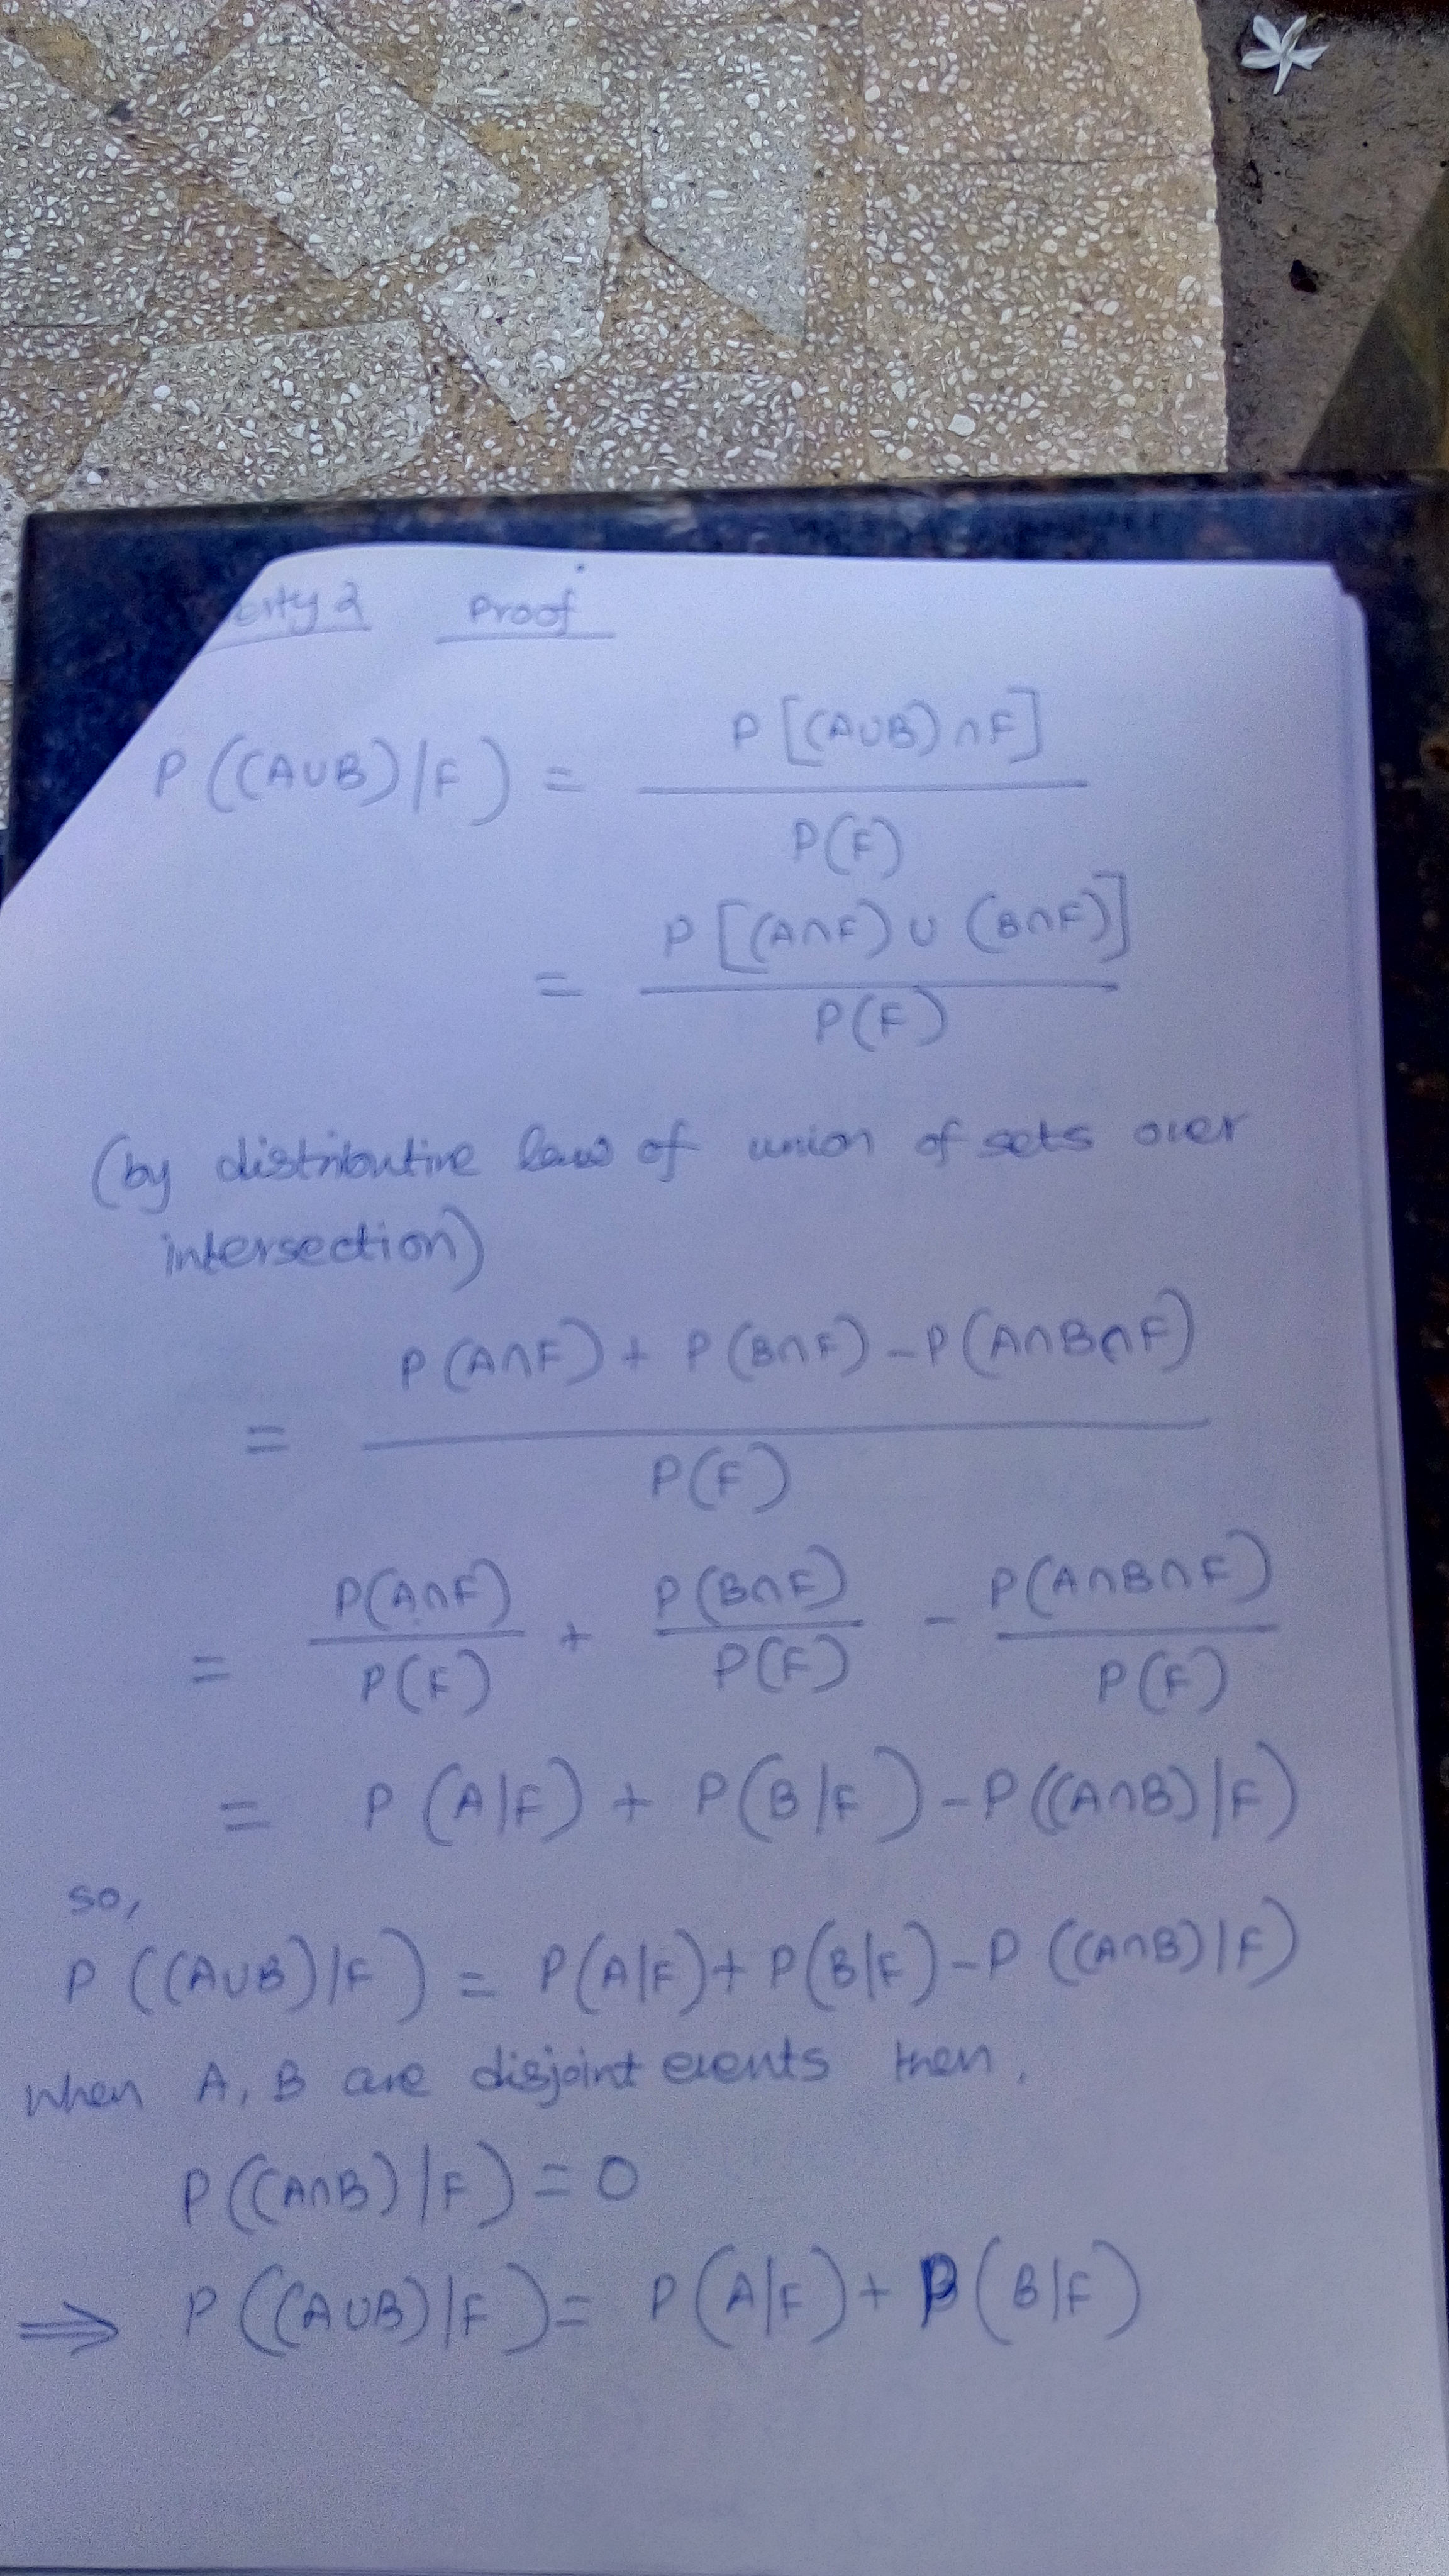 erty 2 Proof
P((A∪B)|F) = P[(A∪B)∩F]
P(F)
= P[(A∩F)∪(B∩F)]
P(F)
(by distributive law of union of sets over
intersection)
P(A∩F) + P(B∩F) - P(A∩B∩F)
=
P(F)
= P(A∩F) + P(B∩F) - P(A∩B∩F)
P(F) P(F) P(F)
= P(A|F) + P(B|F) - P((A∩B)|F)
so,
P((A∪B)|F) = P(A|F) + P(B|F) - P((A∩B)|F)
When A, B are disjoint events then,
P((A∩B)|F) = 0
⇒ P((A∪B)|F) = P(A|F) + P(B|F)